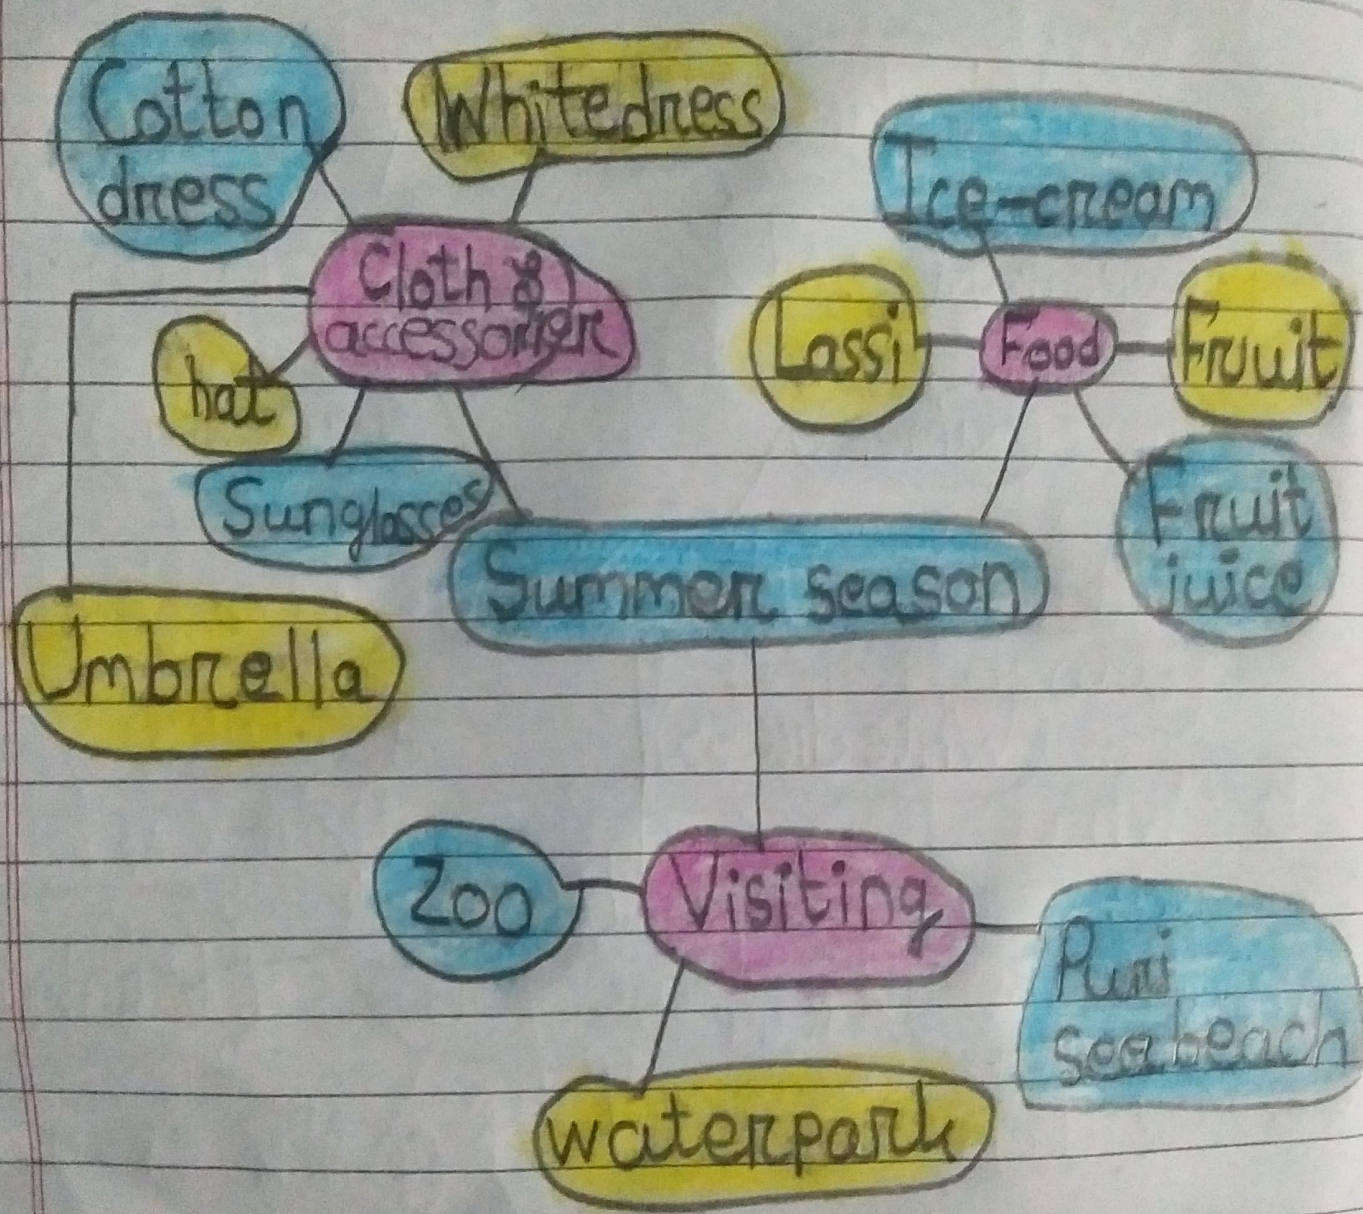 Cotton
dress
Whitedress
Ice-cream
Cloth &
hat
Lassi
Food
Fruit
Sunglasses
Fruit
juice
Summer season
Umbrella
Zoo
Visiting
Puri
seabeach
waterpark